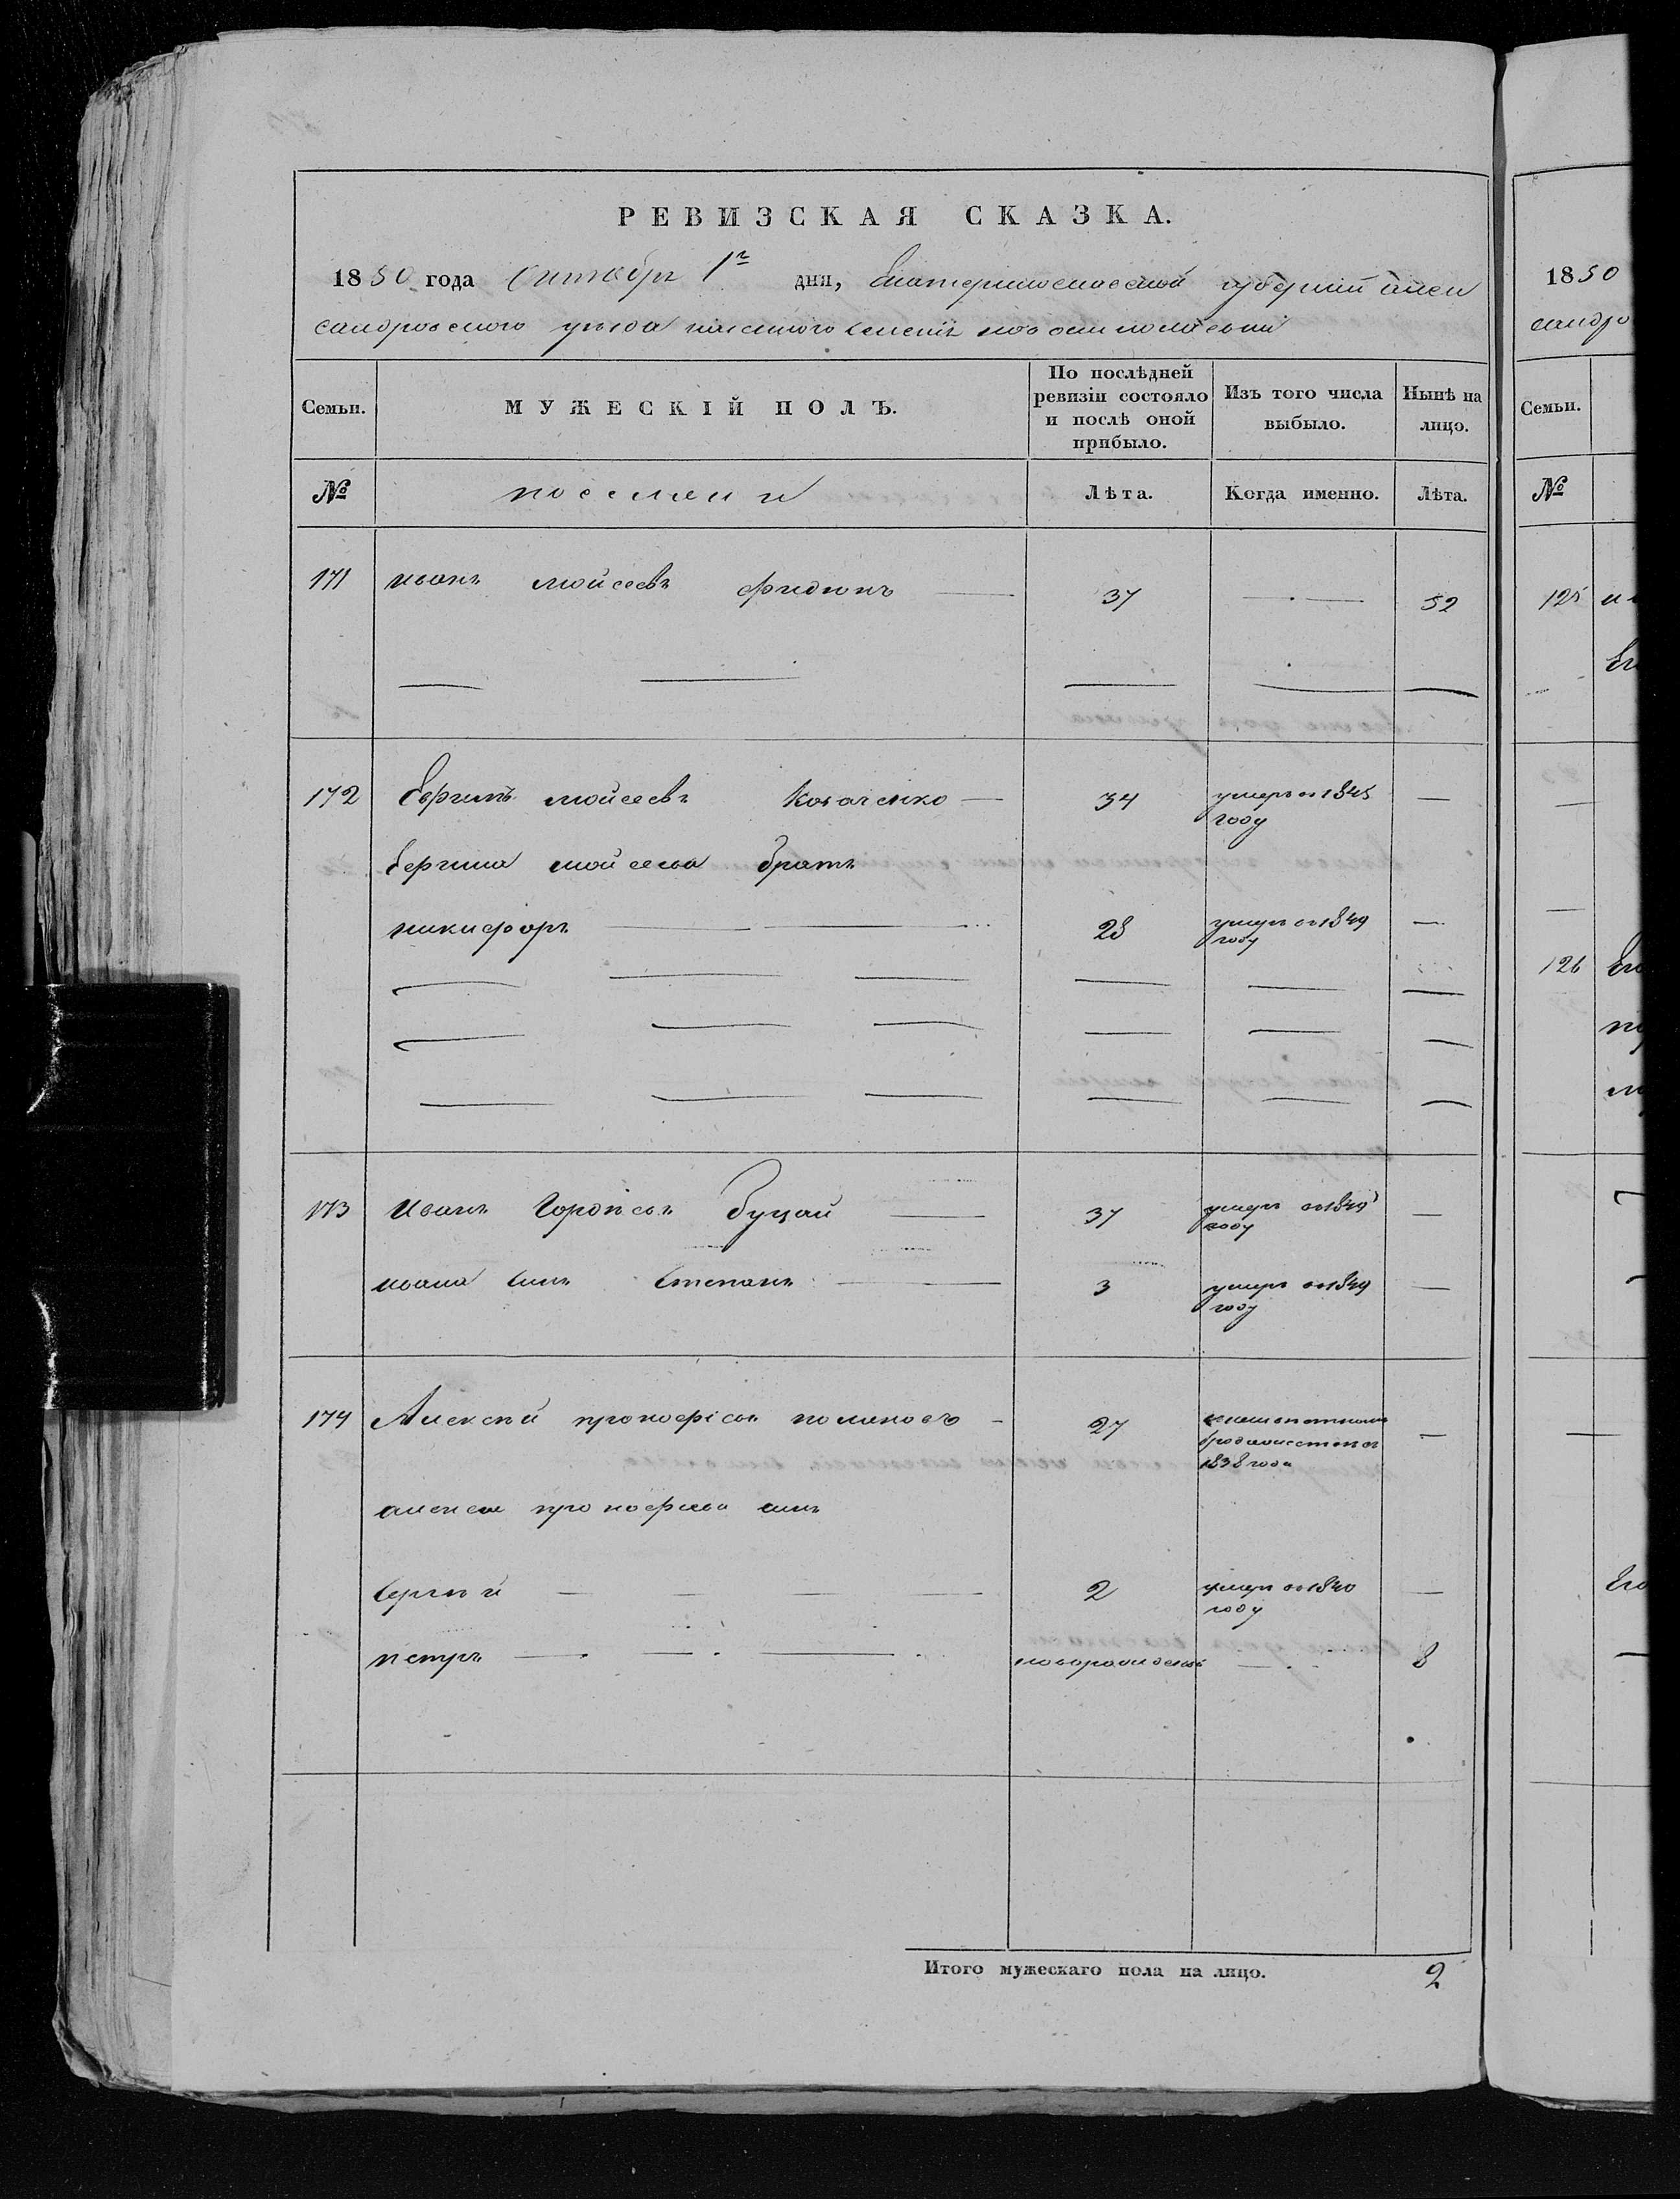 РЕВИЗСКАЯ СКАЗКА.
1850 года Октябр 1го дня, Екатеринославской губернии Алек
сандровского уезда
Семьи.
МУЖЕСКІЙ ПОЛЪ.
По послѣдней ревизіи состояло и послѣ оной прибыло.
Изъ того числа выбыло.
Нынѣ на лицо.
№
Лѣта.
Когда именно.
Лѣта.
171 иванъ мойсеевъ 37 52
172 Ефимъ мойсеевъ Коваленко 34 умеръ въ 1845 году
Ефима мойсеева братъ
никифоръ 28 умеръ въ 1849 году
173 Иванъ Гордѣевъ Буцай 37 умеръ въ 1849 году
ивана сынъ Степанъ 3 умеръ въ 1849 году
174 Алексѣй прокофіевъ 27 1838 года
алексея прокофиева сынъ
Сергѣй 2 умеръ въ 1840 году
петръ новорожденъ 8
Итого мужескаго пола на лицо. 2
1850
сандро
Семьи.
№
125
126